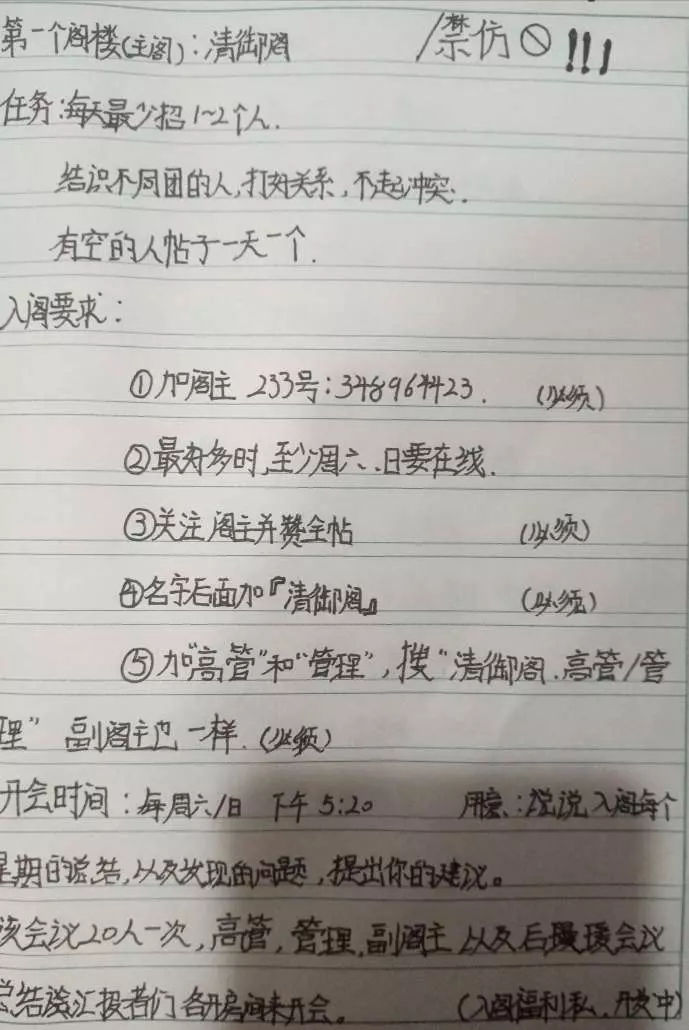 第一个阁楼(主阁)：清御阁 /禁仿🚫!!!
任务：每天最少招1~2个人.
结识不同团的人,打好关系,不起冲突.
有空的人帖子一天一个.
入阁要求：
①加阁主 233号:348964423. (必须)
②最好多时,至少周六、日要在线.
③关注阁主并赞全帖 (必须)
④名字后面加『清御阁』 (必须)
⑤加“高管”和“管理”,搜“清御阁.高管/管
理” 副阁主也一样.(必须)
开会时间：每周六/日 下午5:20 用意:说说入阁每个
星期的总结,以及发现的问题,提出你的建议。
该会议20人一次,高管,管理,副阁主以及后援会议
总结该汇报者们各开房间来开会。 (入阁福利私,开发中)